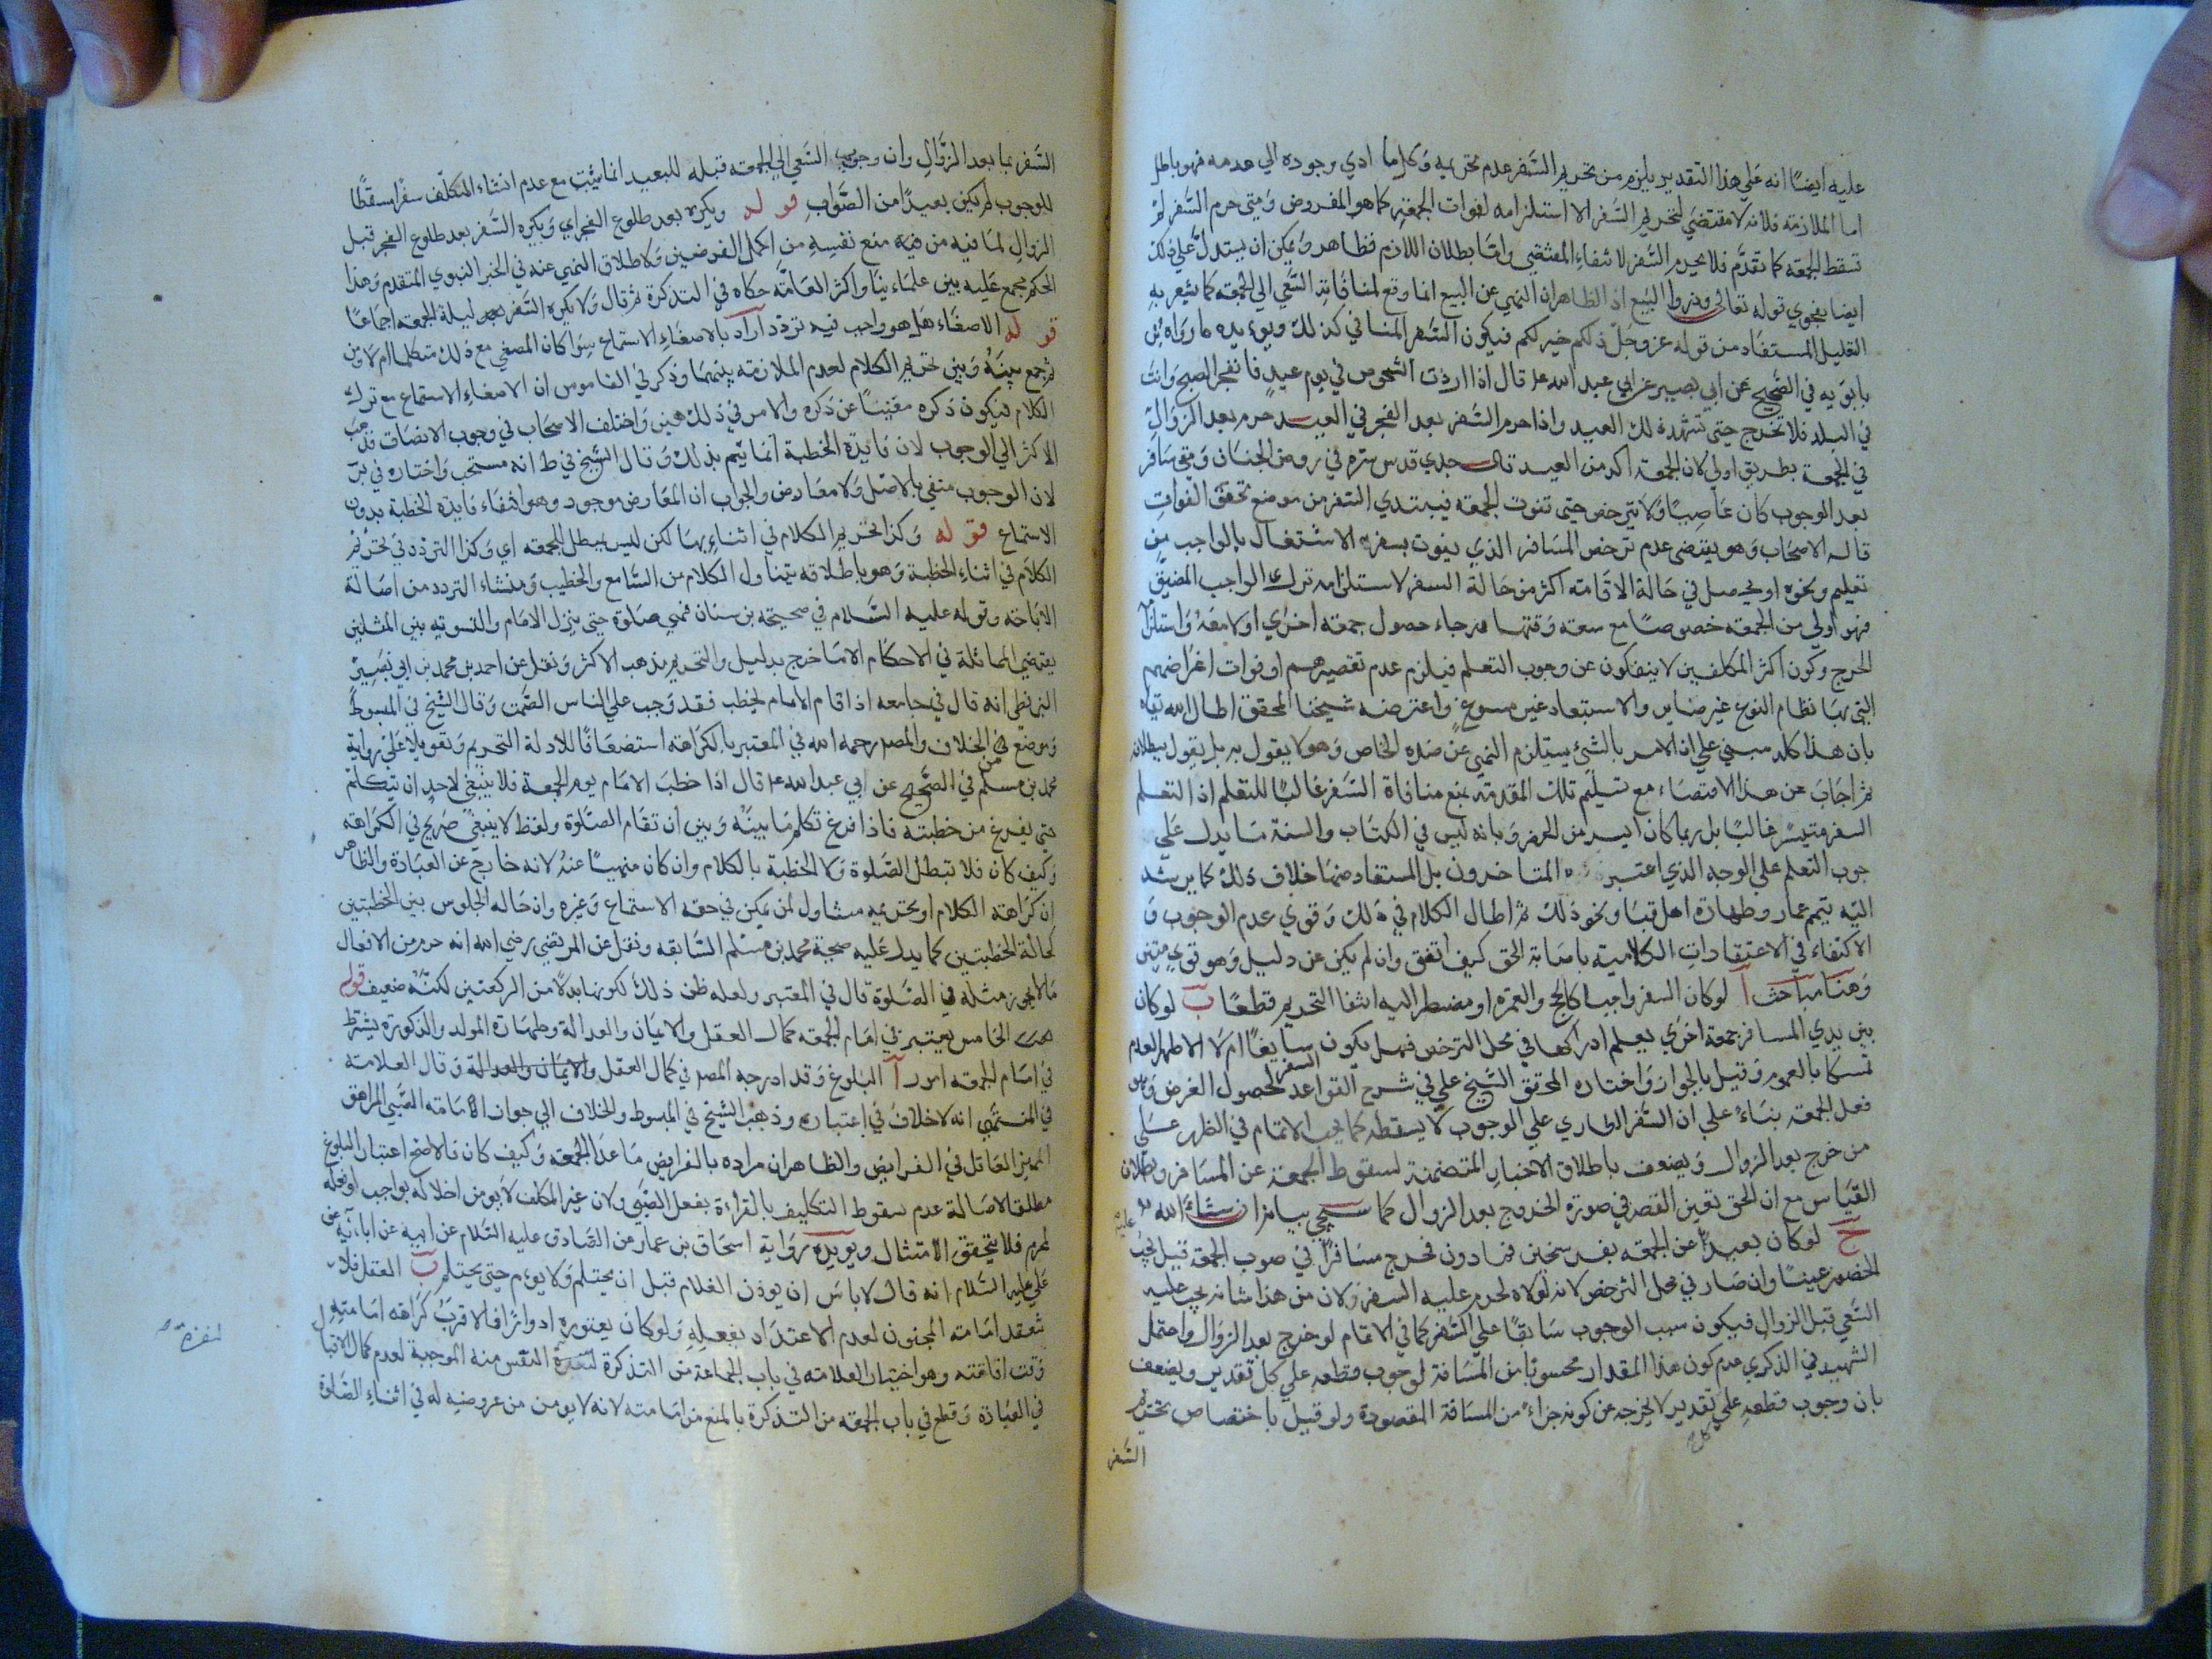 عليه ايضًا انه علي هذا التقدير يلزم من تحريم السَّفر عدم تحريمه وَكلما ادي وجوده الي عدمه فهو باطل
اما الملازمة فلانه لا مقتضي لتحريم السَّفر الا استلزامه لفوات الجمعة كما هو المفروض وَمتي حرم السَّفر لم
تسقط الجمعة كما تقدَّم فلا يحرم السَّفر لانتفاءِ المقتضِي وامّا بطلان اللازم فظاهر وَيمكن ان يستدلّ علي ذلك
ايضا بفحوي قوله تعالى وذروا البيع اذ الظاهر ان النهي عن البيع انما وقع لمنافاتهِ السَّعي الي الجمعة كما يشعر بهِ
التعليل المستفاد من قوله عز وجلّ ذلكم خير لكم فيكون السَّفر المنافي كذلك ويؤيده ما رواه بن
بابَويه في الصَّحيح عن ابي بصير عن ابي عبد الله ع قال اذا اردت الشخوص في يوم عيدٍ فانفجر الصبح وَانت
في البلد فلا تخرج حتى تشهد ذلك العيد واذا حرم السَّفر بعد الفجر في العيــد حرم بعد الزوال
في الجمعة بطريق اولي لان الجمعة اكد من العيد قال جدي قدس سرّه في روض الجنان وَمتي سَافر
بعد الوجوب كان عَاصِيًا وَلا يترخص حتى تفوت الجمعه فيبتدي السّفر من موضع تحقق الفواتِ
قاله الاصحَاب وَهو يقتضي عدم ترخص المسَافر الذي يفوت بسفره الاشتغال بالواجب مِن
تعليم ونحوه او يحصل في حَالة الاقامة اكثر من حَالة السفر لاستلزامه ترك الواجب المضيق
فهو اولي من الجمعه خصوصًا مع سعته وَقتها ورجاء حصول جمعة اخري اولا معَهُ وَاستلزام
الحرج وكون اكثر المكلفين لا ينفكون عن وجوب التعلم فيلزم عدم تقصيرهم او فوات اغراضهم
التي بها نظام النوع غير ضاير والاستبعاد غير مسموعٍ واعترضه شيخنا المحقق اطال الله بقاه
بان هذا كله مبني علي ان الامر بالشئ يستلزم النهي عن ضده الخاص وَهو لا يقول به بل يقول ببطلانه
ثم اجَابَ عن هذا الاقتضاء مع تسليم تلك المقدمة بمنع منافاة السَّفر غالبًا للتعلم اذ التعلم
السفر متيسّر غالبًا بل ربما كان ايسر من الحضر وَبانه ليس في الكتاب والسنة مَا يدل عَلي
جوب التعلم علي الوجه الذي اعتبره المتاخرون بل المستفاد منهما خلاف ذلك كما يرشد
اليه تيمم عمار وطهارة اهل قبا ونحو ذلك ثم اطال الكلام في ذلك وَقوي عدم الوجوب وَ
الاكتفاء في الاعتقادات الكلامية باصابة الحق كيف اتفق وان لم يكن عن دليل وَهو قويٌ متين
وَهنا مباحث آ لو كان السفر واجبا كالحج والعمرة او مضطر اليه انتفا التحريم قطعًا بَ لو كان
بين يدي المسافر جمعة اخري يعلم ادراكها في محل الترخص فهل يكون سايغًا ام لا الاظهر العدم
تمسكا بالعموم وقيل بالجواز وَاختاره المحقق الشيخ علي في شرح القواعد لحصول الغرض وَهو
السَّفر
فعل الجمعة بنَاءً علي ان السَّفر الطاري علي الوجوب لا يسقطه كما يجب الاتمام في الظهر عَلي
من خرج بعد الزوال وَيضعف باطلاق الاخبار المتضمنة لسقوط الجمعة عن المسَافر وبطلان
القيَاس مع ان الحق تعين القصر في صورة الخروج بعد الزوال كما سيجي بيانه ان شاءَ الله
جَ لو كان بعيدًا عن الجمعة بفرسخين فما دون فخرج مسَافرًا في صوب الجمعة قيل يجب عليه
الحضور عينًا وان صَار في محل الترخص لانه لولاه لحرم عليه السفر وَلان من هذا شانه يجب عليه
السَّعي قبل الزوال فيكون سبب الوجوب سَابقًا علي السّفر كما في الاتمام لو خرج بعد الزوال واحتمل
الشهيد في الذكري عدم كون هذا المقدار محسوبًا من المسَافة لوجوب قطعهِ علي كل تقدير ويضعف
بان وجوب قطعهِ علي كل تقدير لا يخرجه عن كونه جزاءً من المسَافة المقصودة ولو قيل باختصاص تحريم
السَّفر
السَّفر بما بعد الزوَّالِ وان وجوب السَّعي الي الجمعة قبله للبعيد انما يثبت مع عدم انشاء المكلّف سفرًا مسقطًا
للوجوب لم يكن بعيدًا من الصَّواب قوله ويكره بعد طلوع الفجر اي وَيكره السَّفر بعد طلوع الفجر قبل
الزوال لمَا فيه من منع نفسِهِ من اكمل الفرضين وَلاطلاق النهي عنه في الخبر النبوي المتقدم وَهذا
الحكم مجمع عَليه بين علمَاءنَا وَاكثر العَامَّة حكاه في التذكرة ثم قال وَلا يكره السَّفر ليلة الجمعة اجمَاعًا
قوله الاصغاء هل هو واجب فيه تردّد اراد بالاصغَاءِ الاستماع سِوَا كان المصغي مع ذلك متكلما ام لا ومن
ثم جمع بينَهُ وَبين تحريم الكلام لعدم الملازمة بينهما وَذكر في القاموس ان الاصغاءِ الاستماع مع ترك
الكلام فيكون ذكره مغنيًا عن ذكره والامر في ذلك هين وَاختلف الاصحَاب في وجوب الانصَات فذهب
الاكثر الي الوجوب لان فايدة الخطبة انما يتم بذلك وَقال الشيخ في ط انه مستحب وَاختاره في بر
لان الوجوب منفي بالاصل وَلا معَارض والجواب ان المعَارض موجود وهو انتفاء فايدة الخطبة بدون
الاستماع قوله وَكذا تحريم الكلام في اثناءِ بها لكن ليس يبطل الجمعه اي وَكذا التردد في تحريم
الكلَام في اثناء الخطبة وَهو باطلاقه يتناول الكلام من السَّامع والخطيب وَمنشاء التردد من اصَالة
الاباحَة وقوله عليه السَّلام في صحيحة بن سنان فهي صلوة حتى ينزل الامَام والتسوية بين المثلين
يقتضي المماثلة في الاحكَام الا مَا خرج بدليل والتحريم مذهب الاكثر وَنقل عن احمد بن محمد بن ابي نصِيرٍ
البزنطي انه قال في جامعه اذا قام الامام يخطب فقد وَجب علي الناس الصَّمت وَقال الشيخ في المبسوط
وَموضع من الخلاف والمصـ رحمه الله في المعتبر بالكراهة استضعَافًا للادلة التحريم وَتعويلًا علي رواية
محمد بن مسلم في الصَّحيح عن ابي عبد الله ع قال اذا خطبَ الامَام يوم الجمعة فلا ينبغي لاحدٍ ان يتكلّم
حتى يفرغ من خطبته فاذا فرغ تكلم مَا بينَهُ وَبين ان تقام الصَّلوة ولفظ لا ينبغي صَريح في الكرَاهة
وَكيف كان فلا تبطل الصَّلوة وَلا الخطبة بالكلام وان كان منهيًا عنهُ لانه خارج عن العبَادة والظاهر
ان كراهة الكلام او تحريمه متناول لمن يمكن في حقه الاستماع وَغيره وان حَاله الجلوس بين الخطبتين
كحالة الخطبتين كما يدل عَليه صحيحة محمد بن مسلم السَّابقه ونقل عن المرتضي رضي الله انه حرم من الافعال
مَا لا يجوز مثله في الصَّلوة قال في المعتبر ولعله ظن ذلك لكونها بدلًا من الركعتين لكنَّهُ ضعيف قوله
الخامس يعتبر في امَام الجمعه كمال العقل والايمَان والعدالة وطهَارة المولد والذكورة يشترط
في امَام الجمعه امور آ البلوغ وَقد ادرجه المصـ في كمال العقل والايمان والعدالة وَقال العلامة
في المنتهي انه لا خلاف في اعتباره وذهب الشيخ في المبسوط والخلاف الي جواز الامَامة الصَّبي المراهق
المميز العَاقل في الفرايض والظاهر ان مراده بالفرايض مَا عدا الجُمعه وَكيف كان فالاصَح اعتبار البلوغ
مطلقا لاصَالة عدم سقوط التكليف بالقراءة بفعل الصَّبي ولان غير المكلف لا يومن اخلاله بواجب او فعله
لمحرم فلا يتحقق الامتثال ويويده رَوَاية اسحَاق بن عمار عن الصَّادق عليه السَّلام عن ابيه عن ابآئه عن
عَلي عليه السَّلام انه قال لا باسَ ان يوذن الغلام قبل ان يحتلم وَلا يؤم حتي يحتلم بَ العقل فلا
تنعقد امَامة المجنون لعدم الاعتدَاد بفعلِهِ وَلو كان يعتوره ادوارًا فالاقربُ كرَاهة امَامتهِ
وَقت افاقته وهو اختيار العلامة في باب الجماعة من التذكرة لنفرة النفس منه الموجبة لعدم كمال الاقبال
في العبَادة وَقطع في باب الجمعه من التذكرة بالمنع من امَامته لانه لا يومن من عروضه له في اثناءِ الصَّلوة
لنفرة